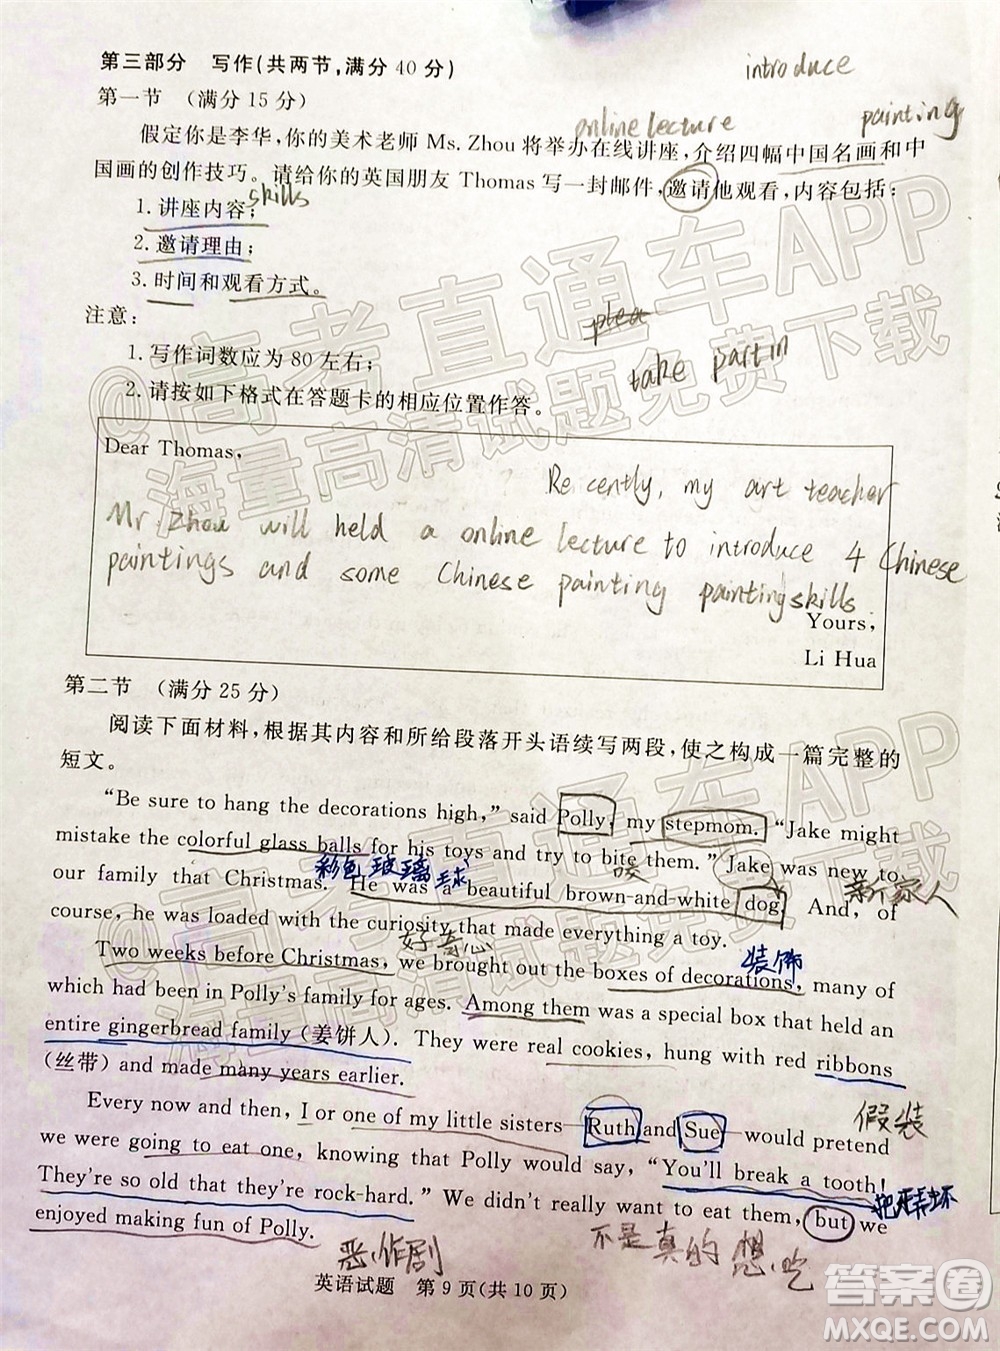 第三部分 写作(共两节,满分40分)
introduce
第一节 (满分15分)
online lecture painting
假定你是李华,你的美术老师 Ms. Zhou 将举办在线讲座,介绍四幅中国名画和中
国画的创作技巧。请给你的英国朋友 Thomas 写一封邮件,邀请他观看,内容包括:
skills
1. 讲座内容;
2. 邀请理由;
3. 时间和观看方式。
注意:
plea
1. 写作词数应为 80 左右;
take part in
2. 请按如下格式在答题卡的相应位置作答。
Dear Thomas,
Recently, my art teacher
Mr. Zhou will held a online lecture to introduce 4 Chinese
paintings and some Chinese painting painting skills.
Yours,
Li Hua
第二节 (满分25分)
阅读下面材料,根据其内容和所给段落开头语续写两段,使之构成一篇完整的
短文。
“Be sure to hang the decorations high,” said Polly, my stepmom. “Jake might
mistake the colorful glass balls for his toys and try to bite them.” Jake was new to
彩色玻璃球 咬 新家人
our family that Christmas. He was a beautiful brown-and-white dog. And, of
course, he was loaded with the curiosity that made everything a toy.
好奇心 装饰
Two weeks before Christmas, we brought out the boxes of decorations, many of
which had been in Polly’s family for ages. Among them was a special box that held an
entire gingerbread family (姜饼人). They were real cookies, hung with red ribbons
(丝带) and made many years earlier.
假装
Every now and then, I or one of my little sisters—Ruth and Sue—would pretend
we were going to eat one, knowing that Polly would say, “You’ll break a tooth!
They’re so old that they’re rock-hard.” We didn’t really want to eat them, but we
把牙弄坏
enjoyed making fun of Polly.
恶作剧 不是真的想吃
英语试题 第 9 页(共 10 页)
@高考直通车APP
海量高清试题免费下载
@高考直通车APP
海量高清试题免费下载
答案圈
MXQE.COM